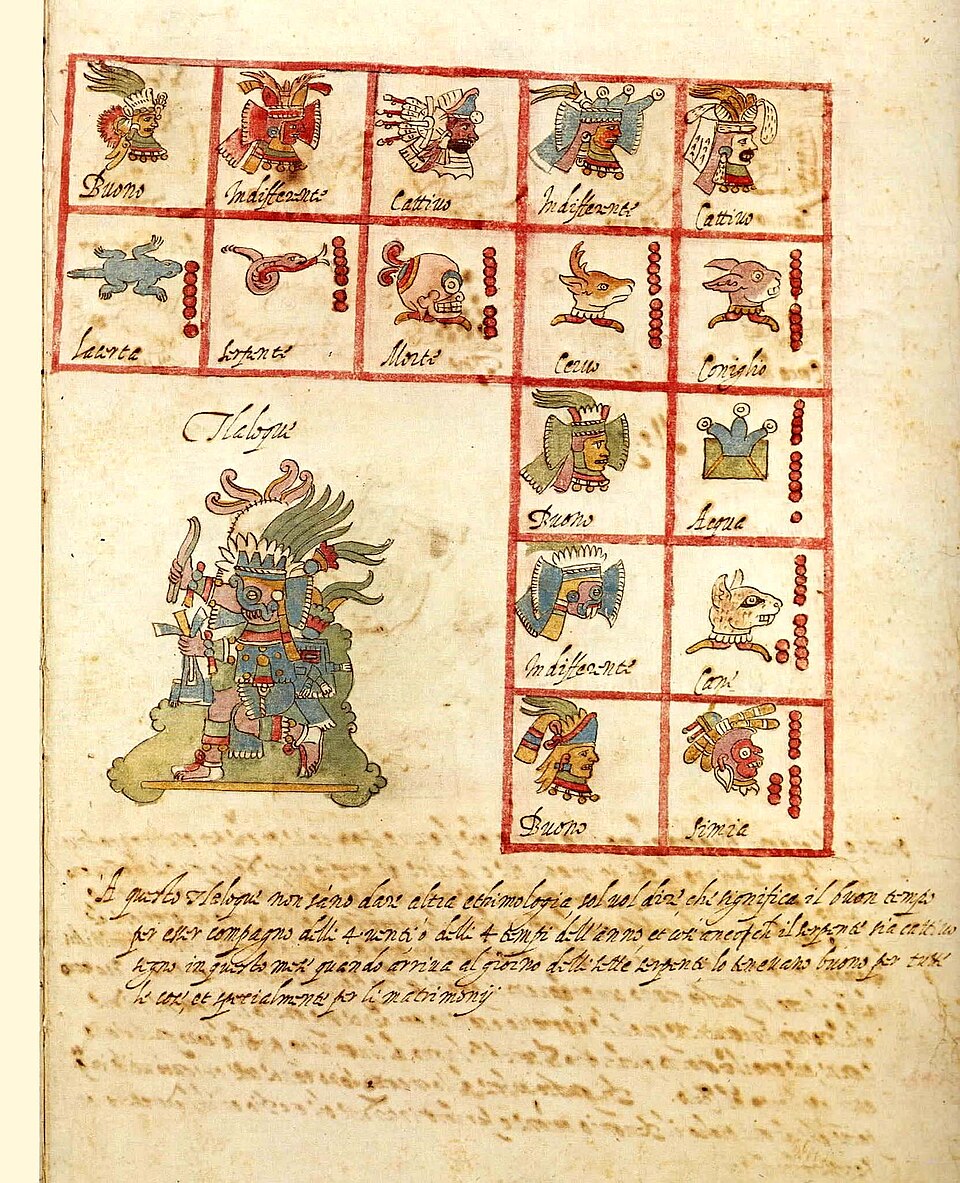 Buono Indifferente Cattiuo Indifferente Cattiuo
Lacerta Serpente Morte Ceruo Coniglio
Tlaloque
Buono Acqua
Indifferente Cane
Buono Simia
A questo Tlaloque non sano dare altra ethimologia sol uol dire che significa il buon tempo
per esser compagno delli 4 uenti ò delli 4 tempi dell'anno et cosi ancorch il serpente sia cattiuo
segno in questo mese quando arriua al giorno delli sette serpente lo teneuano buono per tutte
le cose, et spetialmente per li matrimonij